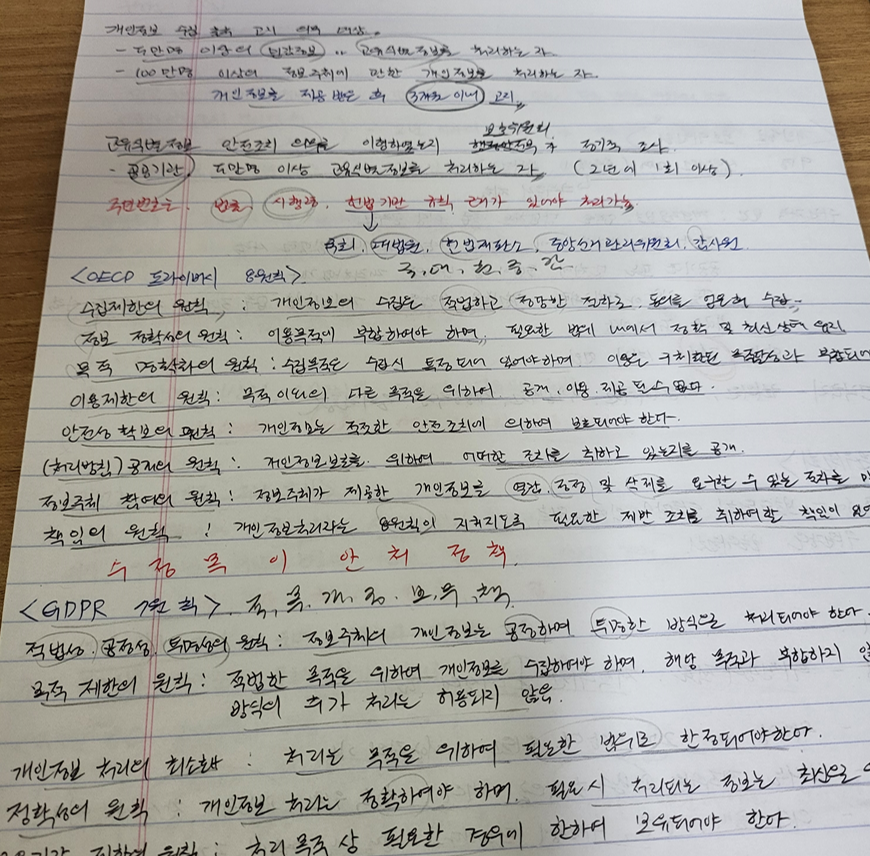 개인정보 수집 출처 고지 의무 대상.
- 5만명 이상의 민감정보 or 고유식별정보를 처리하는 자.
- 100만명 이상의 정보주체에 관한 개인정보를 처리하는 자.
개인정보를 제공 받은 후 3개월 이내 고지
보호위원회
고유식별정보 안전조치 의무를 이행하였는지 정기적 조사.
- 공공기관, 5만명 이상 고유식별정보를 처리하는 자 (2년에 1회 이상)
주민번호는 법률, 시행령, 헌법기관 규칙 근거가 있어야 처리가능
국회, 대법원, 헌법재판소, 중앙선거관리위원회, 감사원
<OECD 프라이버시 8원칙> 국, 대, 헌, 중, 감
수집제한의 원칙 : 개인정보의 수집은 적법하고 정당한 절차로 동의를 수집
정보 정확성의 원칙 : 이용목적에 부합하여야 하며, 필요한 범위 내에서 정확 및 최신상태 유지
목적 명확화의 원칙 : 수집목적은 수집시 특정되어 있어야하며 이용은 구체화된 목적달성과 부합되어
이용제한의 원칙 : 목적이외의 다른 목적을 위하여 공개, 이용, 제공 될 수 없다.
안전성 확보의 원칙 : 개인정보는 적절한 안전조치에 의하여 보호되어야 한다.
(처리방침) 공개의 원칙 : 개인정보보호를 위하여 어떠한 조치를 취하고 있는지를 공개.
정보주체 참여의 원칙 : 정보주체가 제공한 개인정보를 열람, 정정 및 삭제를 요구할 수 있는 절차를
책임의 원칙 : 개인정보처리자는 8원칙이 지켜지도록 필요한 제반 조치를 취하여야할 책임이
수 정 목 이 안 처 정 책
<GDPR 7원칙>. 적, 목, 개, 정, 보, 무, 책
적법성, 공정성, 투명성의 원칙 : 정보주체의 개인정보는 공정하며 투명한 방식으로 처리되어야 한다.
목적 제한의 원칙 : 적법한 목적을 위하여 개인정보를 수집하여야 하며, 해당 목적과 부합하지 않
방식의 추가 처리는 허용되지 않음
개인정보 처리의 최소화 : 처리는 목적을 위하여 필요한 범위로 한정되어야한다.
정확성의 원칙 : 개인정보 처리는 정확하여야 하며, 필요시 처리되는 정보는 최신으로
제한의 원칙 : 처리 목적상 필요한 경우에 한하여 보유되어야 한다.